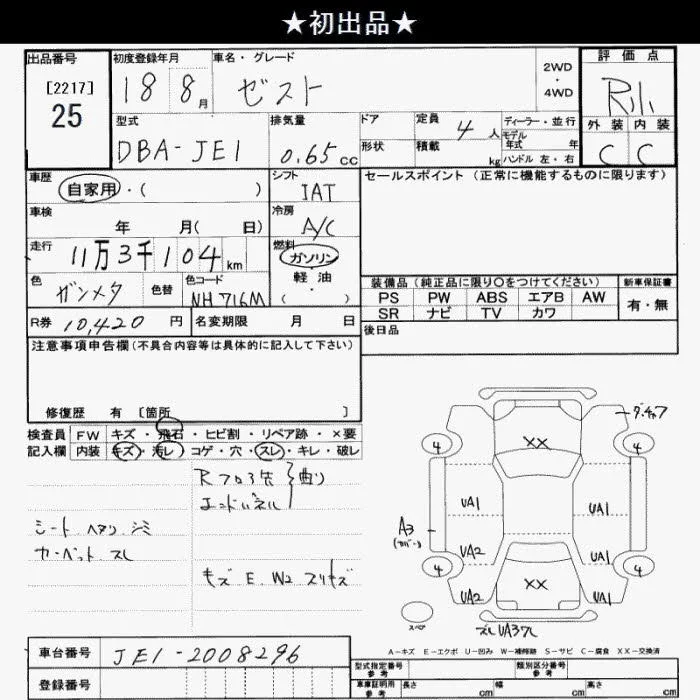 ★初出品★
出品番号
[2217]
25
初度登録年月
18 8月
車名・グレード
ゼスト
2WD
・
4WD
評価点
外装 内装
C C
型式
DBA-JE1
排気量
0.65cc
ドア
形状
定員 4人
積載 kg
ディーラー・並行
モデル年式 年
ハンドル 左・右
車歴
自家用・( )
シフト
IAT
セールスポイント(正常に機能するものに限ります)
車検
年 月( 日)
冷房
A/C
走行
11万3千104km
燃料
ガソリン
軽・油
( )
色
ガンメタ
色替
色コード
NH716M
装備品(純正品に限り○をつけてください)
新車保証書
PS PW ABS エアB AW
有・無
SR ナビ TV カワ
R券 10,420円
名変期限 月 日
後日品
注意事項申告欄(不具合内容等は具体的に記入して下さい)
修復歴 有 [箇所 ]
検査員
記入欄
FW キズ・飛石・ヒビ割・リペア跡・×要
内装 キズ・汚レ・コゲ・穴・スレ・キレ・破レ
エンドパネル
シート ヘタリ シミ
カーペット スレ
キズ E W2 スリキズ
XX
4
4
UA1
UA1
A3
(カバー)
UA2
UA1
4
4
XX
UA2
UA1
スペア
A-キズ E-エクボ U-凹み W-補修跡 S-サビ C-腐食 XX-交換済
車台番号
JE1-2008296
登録番号
型式指定番号
参考
類別区分番号
参考
車庫証明用
参考
長さ cm
幅 cm
高さ cm